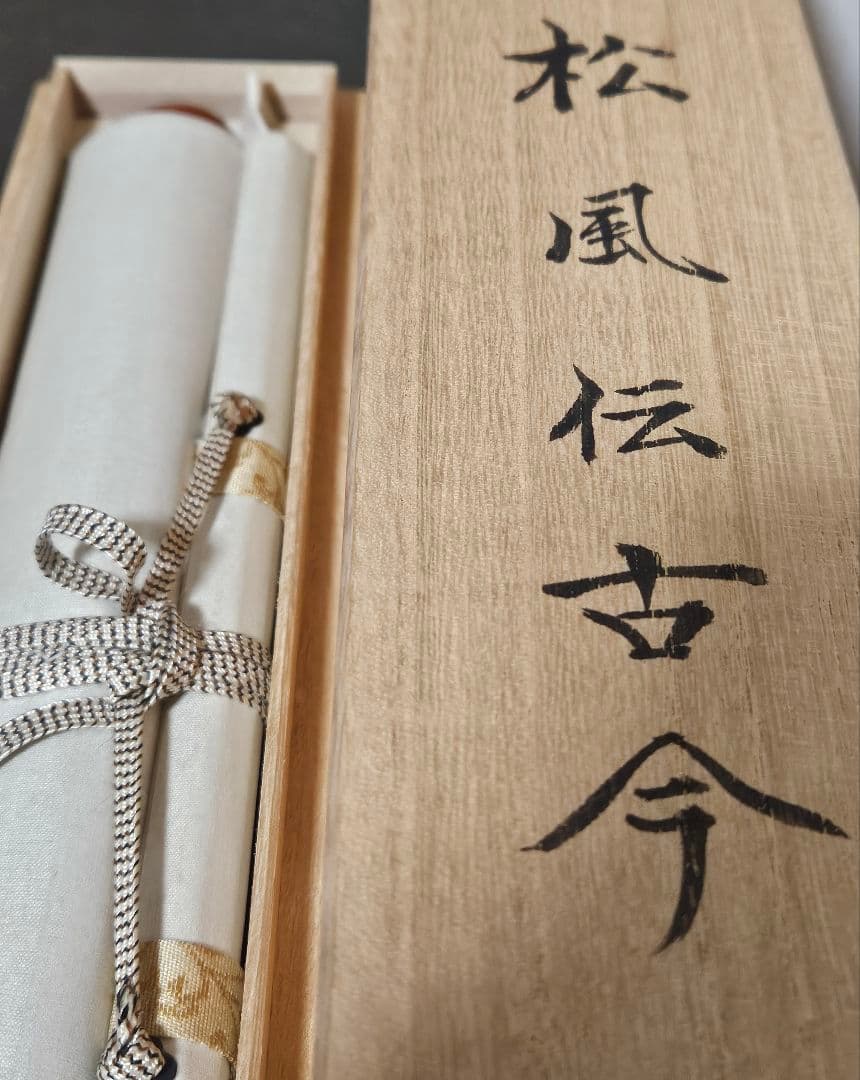 松風伝古今